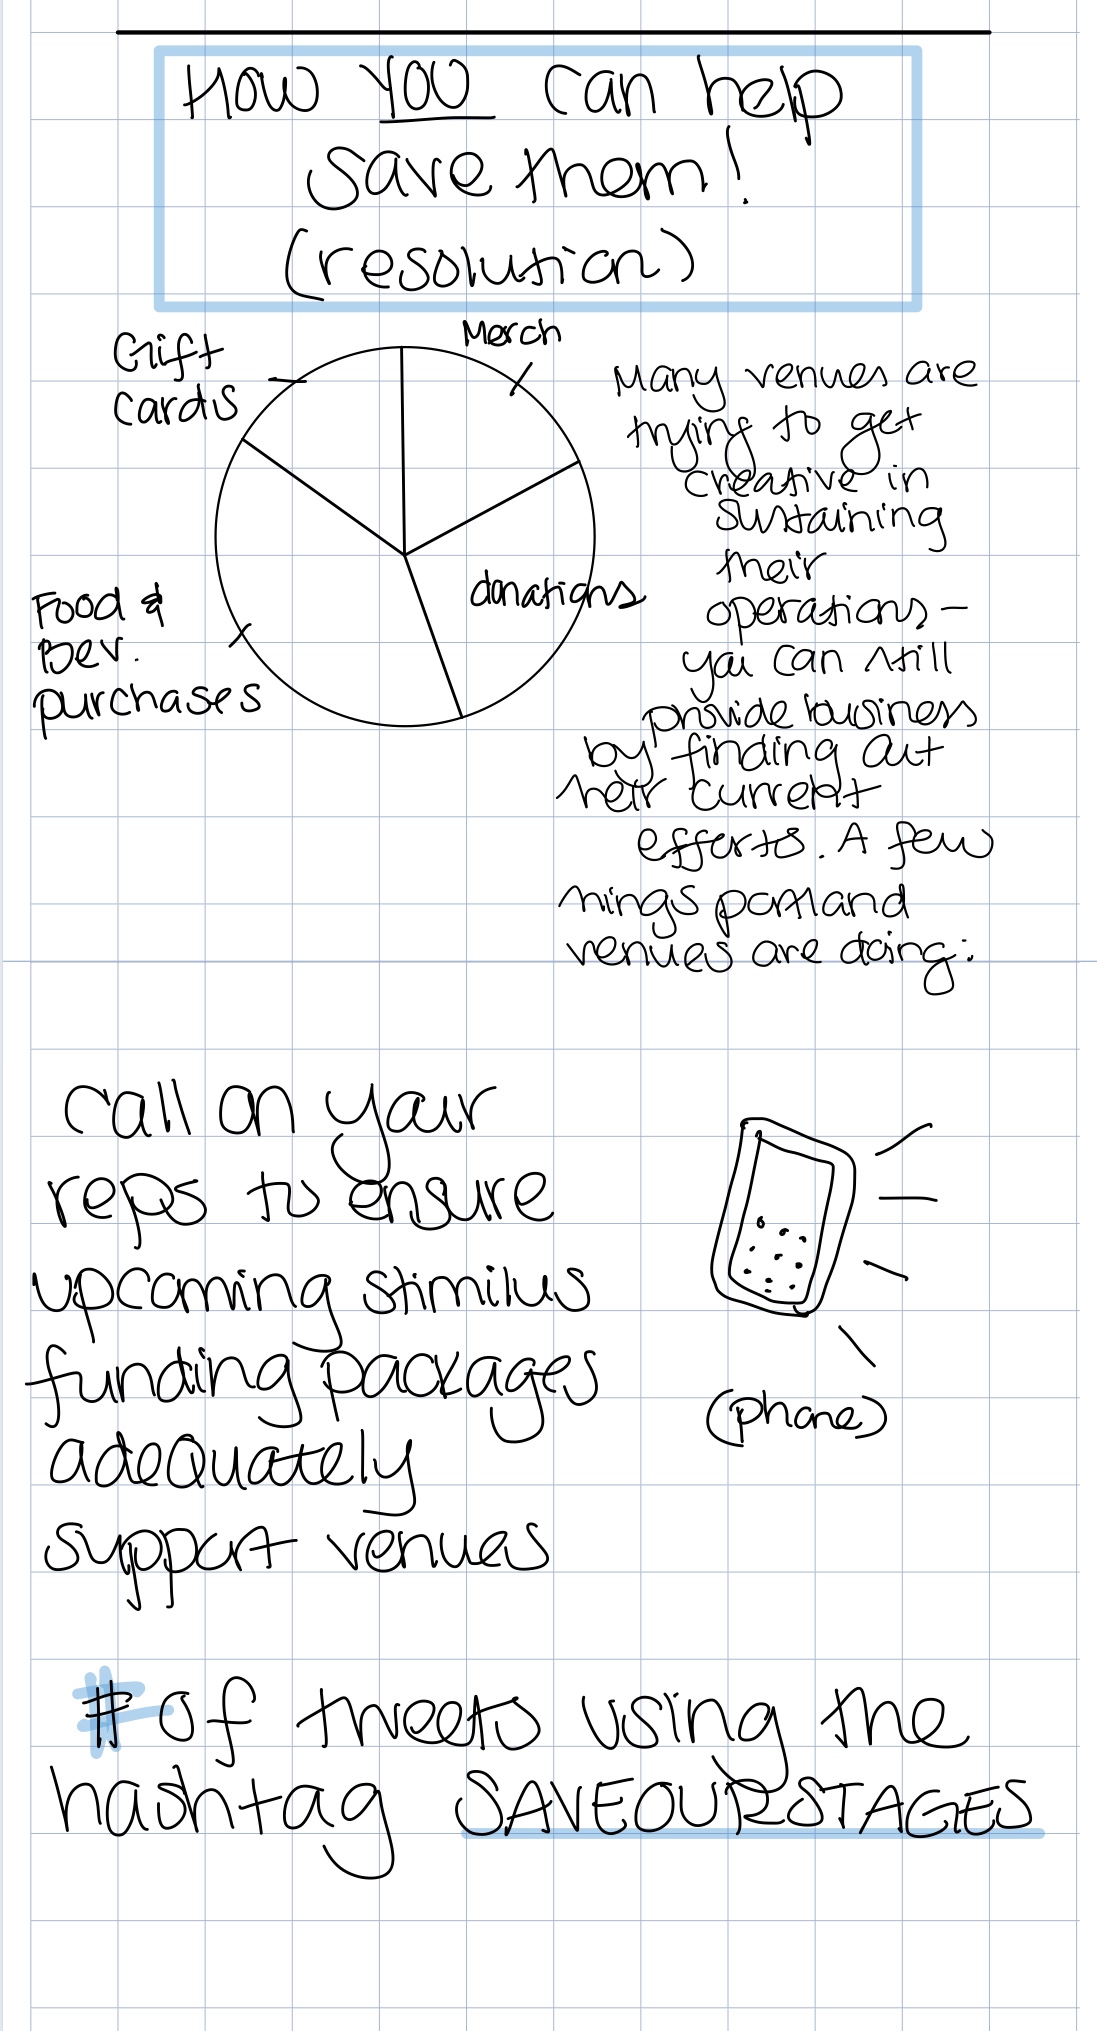 How YOU can help
save them!
(resolution)
Merch
Gift
cards
donations
Food &
Bev.
purchases
Many venues are
trying to get
creative in
sustaining
their
operations -
you can still
provide business
by finding out
their current
efforts. A few
things portland
venues are doing:
call on your
reps to ensure
upcoming stimilus
funding packages
adequately
support venues
(phone)
# of tweets using the
hashtag SAVEOURSTAGES